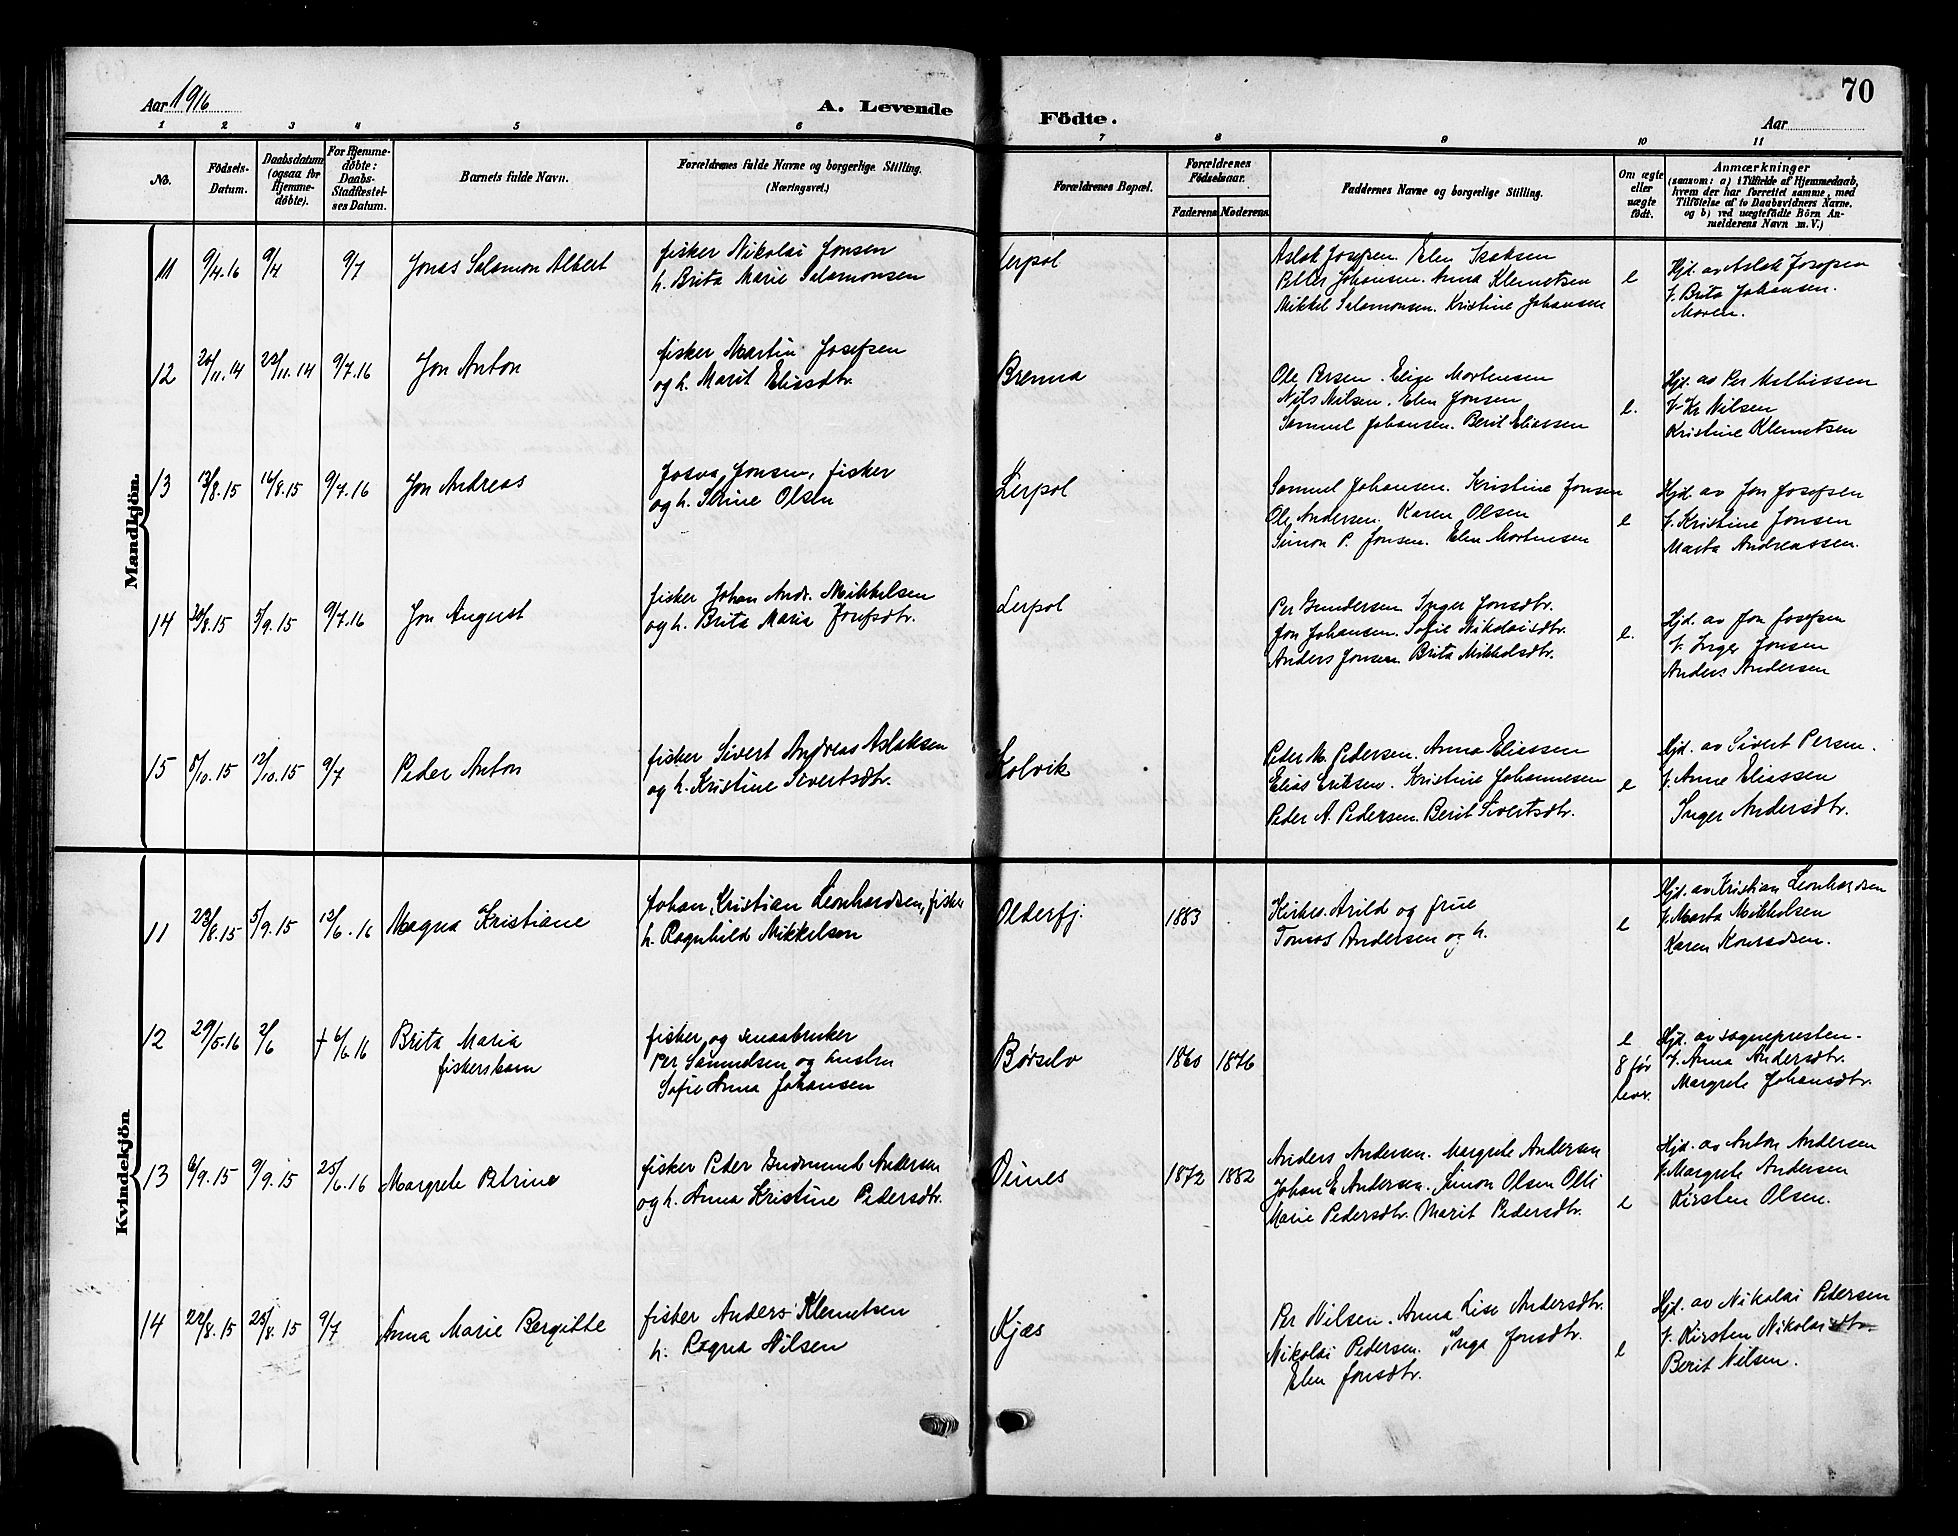 Aar 1916
A. Levende
Födte.
70
Aar
1 2 3 4 5 6 7 8 9 10 11
No.
Födsels-Datum.
Daabsdatum (ogsaa for Hjemme-döbte).
For Hjemme-döbte: Daabs-Stadfæstel-ses Datum.
Barnets fulde Navn.
Forældrenes fulde Navne og borgerlige Stilling.
(Næringsvei.)
Forældrenes Bopæl.
Forældrenes Födselsaar.
Faderens Moderens
Faddernes Navne og borgerlige Stilling.
Om ægte eller uægte födt.
Anmærkninger
(saasom: a) i Tilfælde af Hjemmedaab,
hvem der har forrettet samme, med
Tilföielse af to Daabsvidners Navne,
og b) ved uægtefödte Börn An-
melderens Navn m. V.)
Mandkjön.
11 9/4.16 9/4 9/7 Jonas Salamon Albert
fisker Nikolai Jonsen
h. Brita Marie Salamonsen
Lerpol
Aslak Josefsen Elen Isaksen
Petter Johansen. Anna Klemetsen
Mikkel Salamonsen. Kristine Johansen
e
Hjd. av Aslak Josefsen
V. Brita Johansen.
Moren.
12 20/11.14 23/11.14 9/7.16 Jon Anton
fisker Martin Josefsen
og h. Marit Eliasdtr.
Brenna
Ole Persen. Elige Mortensen
Nils Nilsen. Elen Jonsen
Samuel Johansen. Berit Eliassen
e.
Hjd. av Per Mathissen
V. Kr Nilsen
Kristine Klemetsen
13 13/8.15 16/8.15 9/7.16 Jon Andreas
Josva Jonsen, fisker
og h. Serine Olsen
Lerpol
Samuel Johansen. Kristine Jonsen
Ole Andersen. Karen Olsen
Simon P. Jonsen. Elen Mortensen
e
Hjd. av Jon Josefsen
V. Kristine Jonsen
Marta Andreassen.
14 30/8.15 5/9.15 9/7.16 Jon August
fisker Johan Andr. Mikkelsen
og h. Brita Maria Josefsdtr.
Lerpol
Per Gundersen Inger Jonsdtr.
Jon Johansen. Sofie Nikolaisdtr.
Anders Jonsen Brita Mikkelsdtr.
e.
Hjd. av Jon Josefsen
V. Inger Jonsen
Anders Andersen
15 5/10.15 12/10.15 9/7 Peder Anton
fisker Sivert Andreas Aslaksen
og h. Kristine Sivertsdtr.
Kolvik
Peder M. Pedersen. Anna Eliassen
Elias Eriksen. Kristine Johannesen
Peder A. Pedersen. Berit Sivertsdtr.
e
Hjd. av Sivert Persen.
V. Anne Eliassen
Inger Andersdtr.
Kvindekjön
11 23/8.15 5/9.15 12/6.16 Magna Kristiane
Johan Kristian Leonhardsen, fisker
h. Ragnhild Mikkelsen
Olderfj.
1883
Kirkes. Arild og frue
Tomas Andersen og h.
e
Hjd. av Kristian Leonhardsen
V. Marta Mikkelsen
Karen Konradsen.
12 29/5.16 2/6 † 6/6.16 Brita Maria
fiskersbarn
fisker og smaabruker
Per Samuelsen og hustru
Sofie Anna Johansen
Børselv
1860 1876
e
8 før
lev.
Hjd. av sognepresten.
V. Anna Andersdtr.
Margrete Johansdtr.
13 6/9.15 9/9.15 25/6.16 Margrete Petrine
fisker Peder Gudmund Andersen
og h. Anna Kristine Pedersdtr.
Oines
1872 1882
Anders Andersen. Margrete Andersen
Johan E Andersen. Simon Olsen Olli
Marie Pedersdtr. Marit Pedersdtr.
e
Hjd. av Anton Andersen
V. Margrete Andersen
Kirsten Olsen.
14 22/8.15 25/8.15 9/7 Anna Marie Bergitte
fisker Anders Klemetsen
h. Ragna Nilsen
Kjæs
Per Nilsen. Anna Lise Andersdtr.
Nikolai Pedersen. Inga Jonsdtr.
Elen Jonsdtr.
e
Hjd. av Nikolai Pedersen
V. Kirsten Nikolaisdtr.
Berit Nilsen.